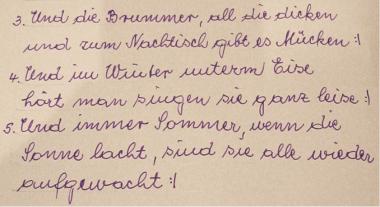 3. Und die Brummer, all die dicken
und zum Nachtisch gibt es Mücken :|
4. Und im Winter unterm Eise
hört man singen sie ganz leise :|
5. Und immer Sommer, wenn die
Sonne lacht, sind sie alle wieder
aufgewacht :|